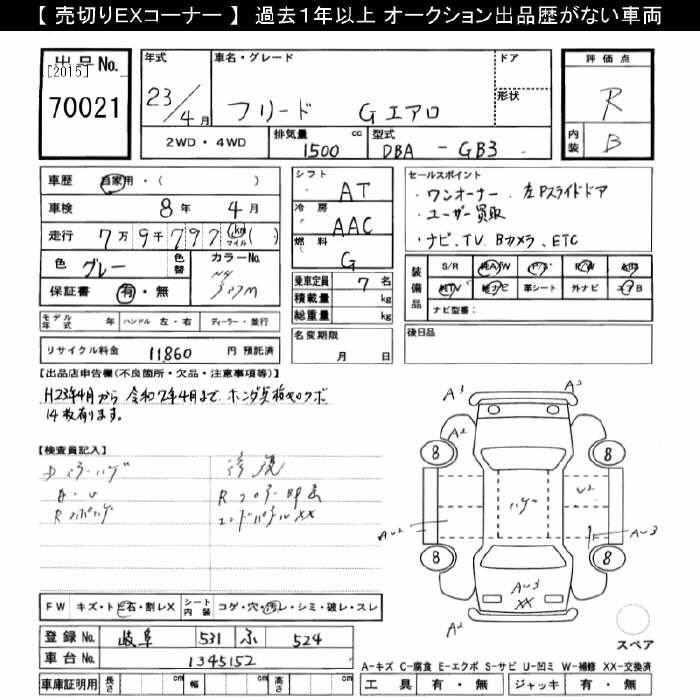 【 売切りEXコーナー 】 過去1年以上 オークション出品歴がない車両
出品 No.
[2015]
70021
年式
23/4月
車名・グレード
フリード Gエアロ
ドア
形状
評価点
R
内装
B
2WD・4WD
排気量
1500 cc
型式
DBA - GB3
車歴 自家用・( )
車検 8年 4月
走行 7万9千797 km マイル ( )
色 グレー
色替
カラーNo.
保証書 有・無
モデル年式 年 ハンドル 左・右 ディーラー・並行
リサイクル料金 11,860 円 預託済
シフト
AT
冷房
AAC
燃料
G
乗車定員 7 名
積載量 kg
総重量 kg
名変期限
月 日
セールスポイント
・ワンオーナー、左Pスライドドア
・ユーザー買取
・ナビ、TV、Bカメラ、ETC
装備品
S/R 純A/W P/S P/W ABS
純TV 純ナビ 革シート 外ナビ エアB
ナビ型番:
後日品
【出品店申告欄(不良箇所・欠品・注意事項等)】
H23年4月から 令和7年4月まで、ホンダ点検キロクボ
14枚有ります。
【検査員記入】
修復
エンドパネルXX
FW キズ・ト ビ石・割レX シート内装 コゲ・穴・汚レ・シミ・破レ・スレ
登録 No. 岐阜 531 ふ 524
車台 No. 1345152
車庫証明用 長さ cm 幅 cm 高さ cm
A3
A3
A2
8
8
8
8
U2
AU2
AU3
AU3
XX
A2
スペア
A-キズ C-腐食 E-エクボ S-サビ U-凹ミ W-補修 XX-交換済
工具 有・無 ジャッキ 有・無